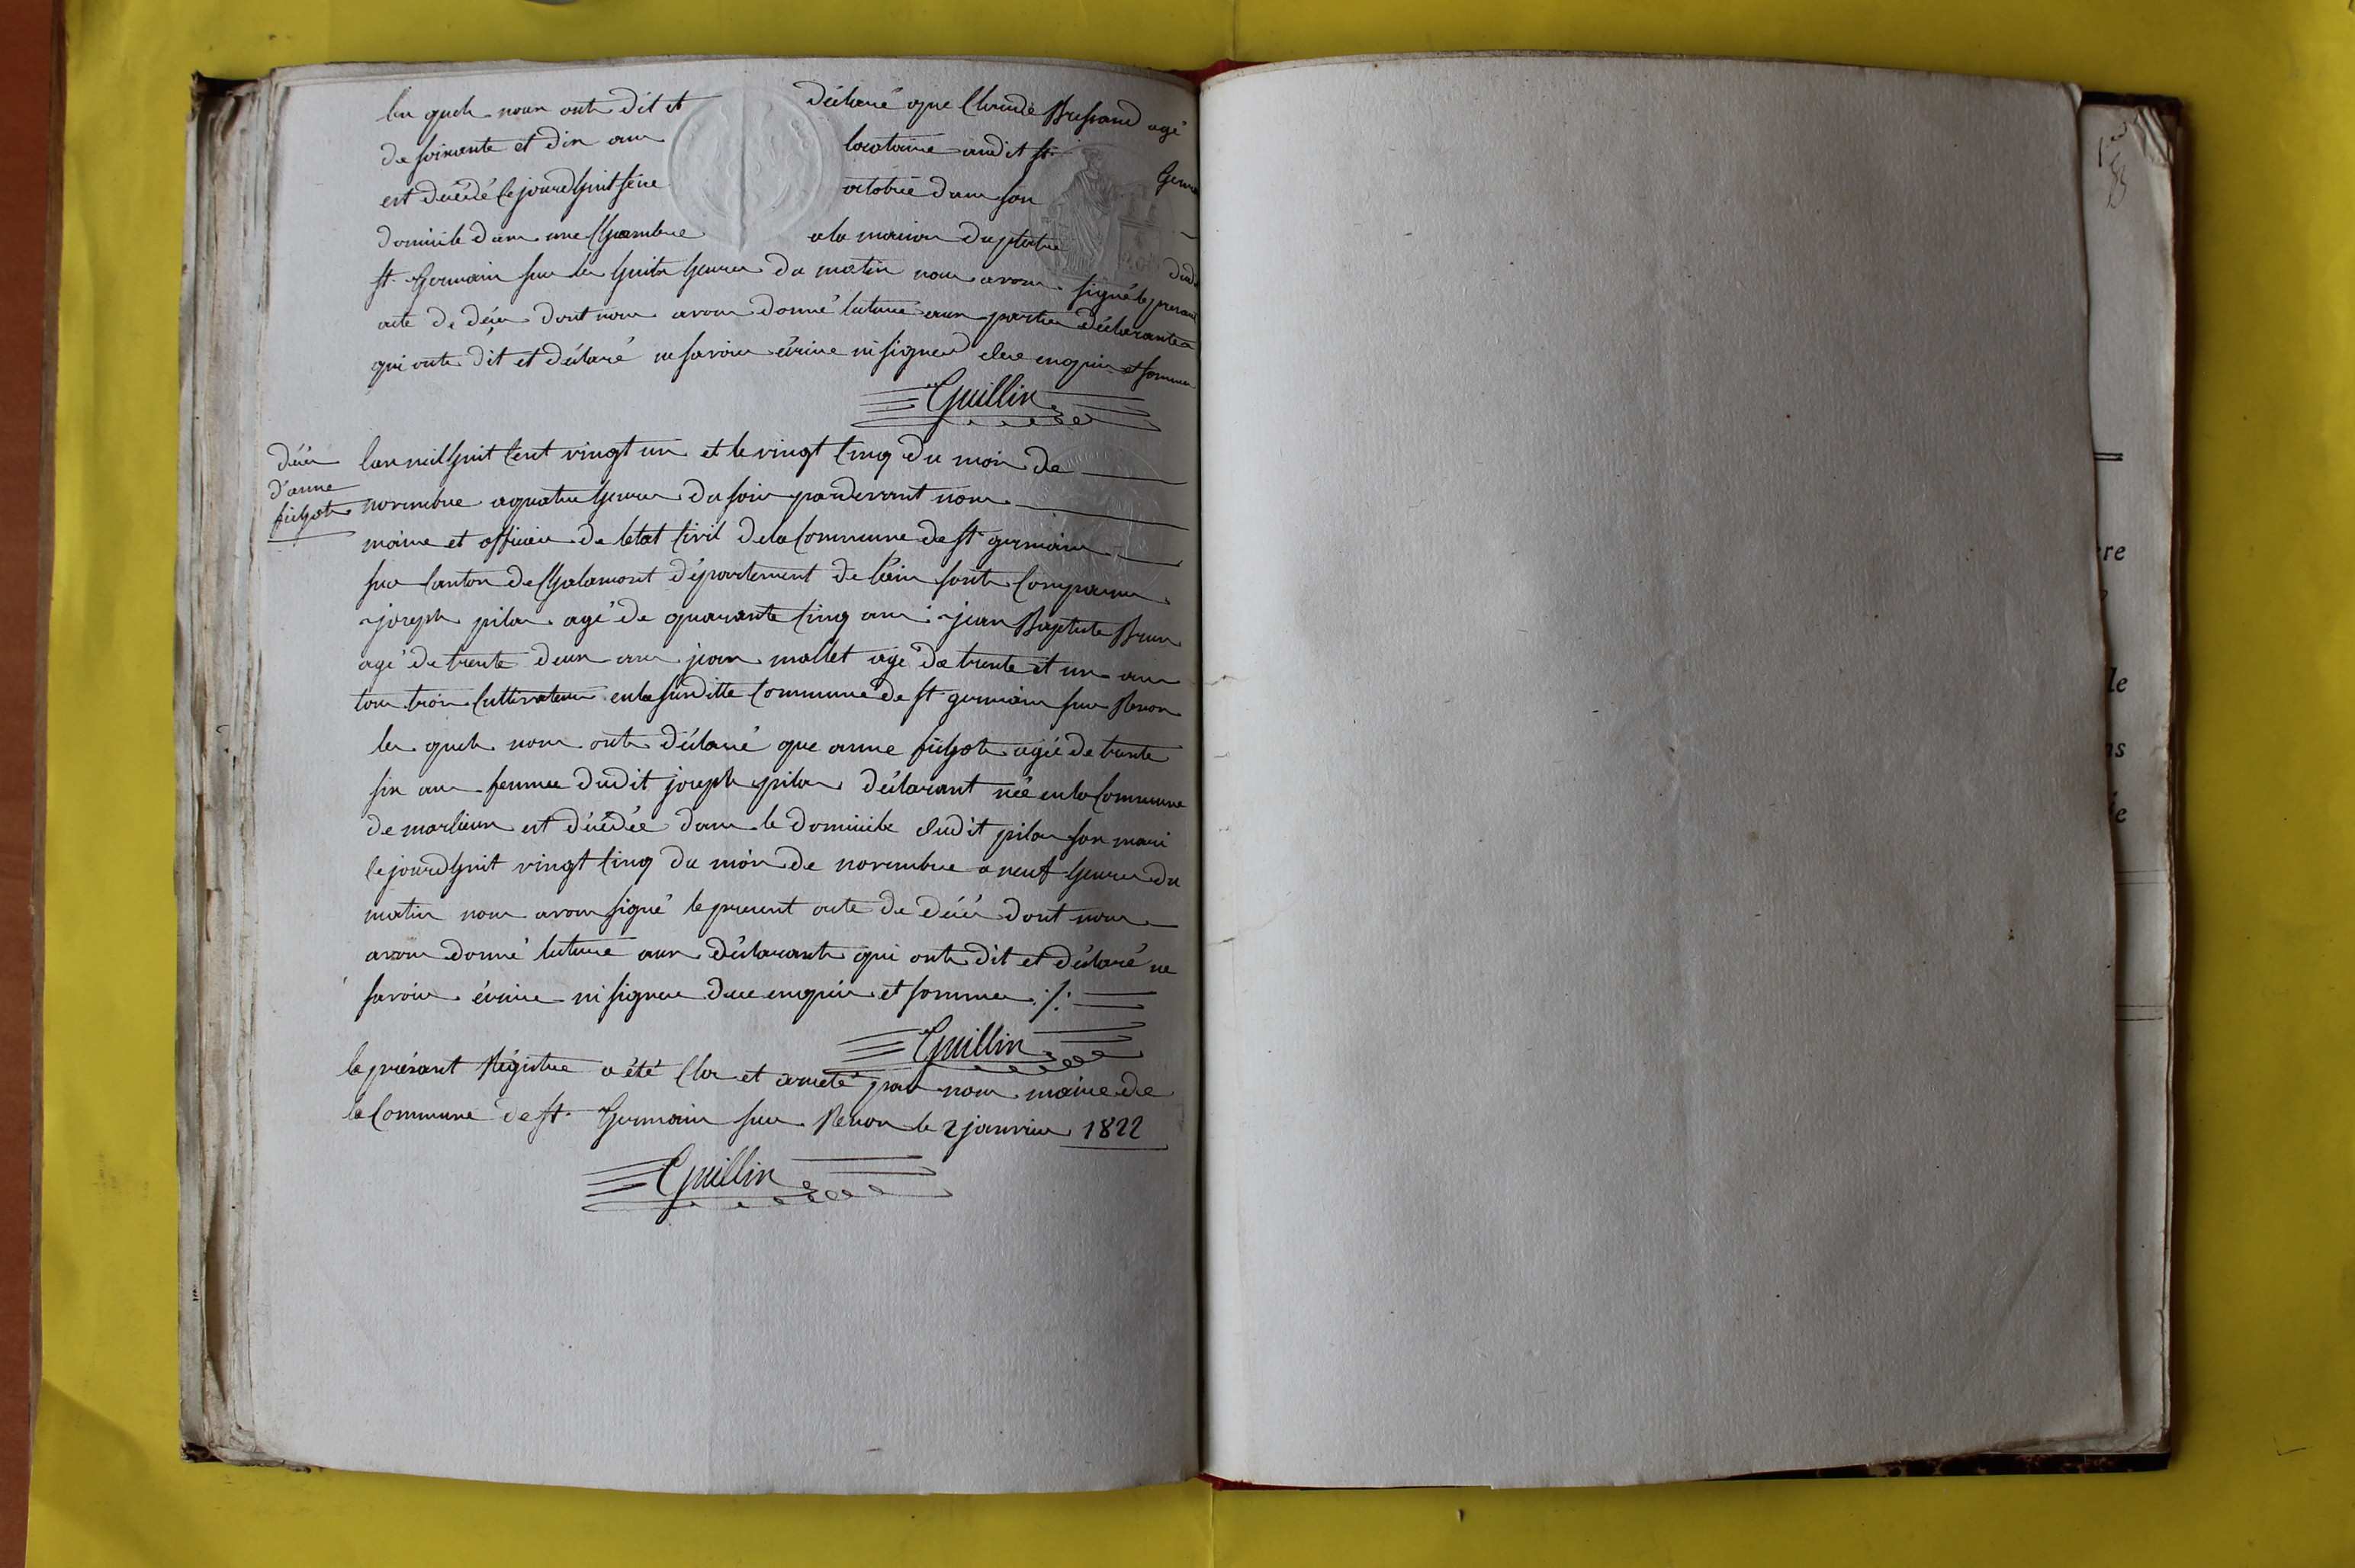 les quels nous ont dit et déclaré que Claude Bressand agé
de soixante et dix ans locataire audit st. Germa
est décédé cejourdhuit seize octobre dans son
domicile dans une Chambre a la maison du platre dud
st. Germain sur les huits heures du matin nous avons signé le present
acte de décès dont nous avons donné lecture aux parties déclarantes
qui onts dit et déclaré ne savoir écrire ni signer de ce enquis et sommes
Guillin
décès
d'anne
fichet
lan mil huit Cent vingt un et le vingt Cinq du mois de
novembre a quatre heures du soir pardevant nous
maire et officier de letat Civil de la Commune de st germain
sur Canton de Chalamont département de l'ain sont Comparus
joseph pilas agé de quarante Cinq ans jean Baptiste Brun
agé de trente deux ans jean mallet agé de trente et un ans
tous trois Cultivateurs en la susditte Commune de st germain sur Renon
les quels nous onts déclaré que anne fichet agée de trente
six ans femme dudit joseph pilas déclarant née en la Commune
de marlieux est décédée dans le domicile dudit pilas son mari
cejourdhuit vingt Cinq du mois de novembre a neuf heures du
matin nous avons signé le present acte de décès dont nous
avons donné lecture aux déclarants qui onts dit et déclaré ne
savoir écrire ni signer de ce enquis et sommes ./.
Guillin
le présent Régistre a été Clos et arreté par nous maire de
la Commune de st. Germain sur Renon le 2 janvier 1822
Guillin
re
le
ns
e